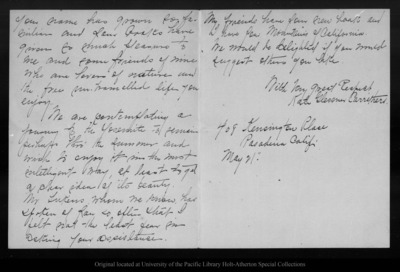 Your name has grown so fa-
miliar and your books have
given so much pleasure to
me and some friends of mine
who are lovers of nature and
the free untrammelled life you
enjoy.
We are contemplating a
journey to the Yosemite
perhaps this summer and
wish to enjoy it in the most
intelligent way, at least to get
a clear idea of its beauty.
My sisters whom we know, has
spoken of you so often that I
felt not the least fear in
asking your assistance.
My friends have your new book and
I have the Mountains of California
We would be delighted if you would
suggest others you like
With very great respect
Carruthers.
Kensington Place
Pasadena Calif:
May 21st
Original located at University of the Pacific Library Holt-Atherton Special Collections